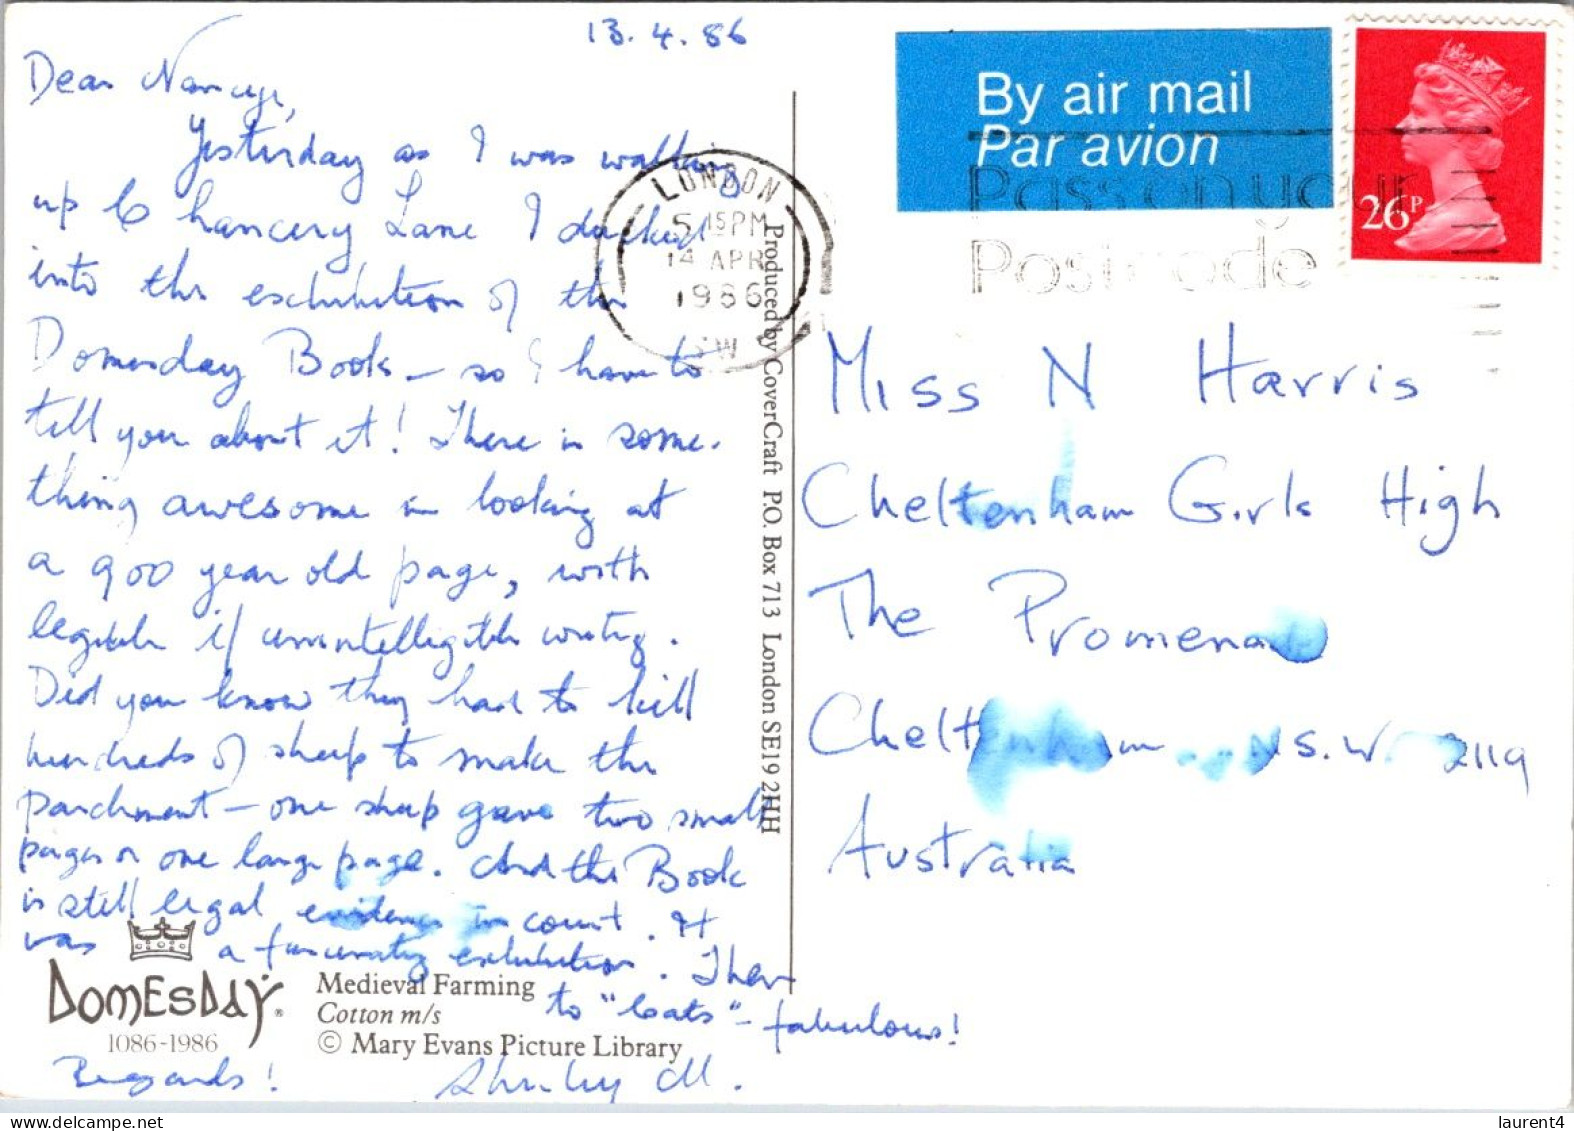 13.4.86
Dear Nancye,
Yesterday as I was walking
up Chancery Lane I ducked
into the exhibition of the
Domesday Book – so I have to
tell you about it! There is some-
thing awesome in looking at
a 900 year old page, with
legible if unintelligible writing.
Did you know they had to kill
hundreds of sheep to make the
parchment – one sheep gave two small
pages or one large page. And the Book
is still legal evidence in court. It
was a fascinating exhibition. Then
to "Cats" – fabulous!
Regards! Shirley M.
DOMESDAY
1086-1986
Medieval Farming
Cotton m/s
© Mary Evans Picture Library
Produced by CoverCraft P.O. Box 713 London SE19 2HH
By air mail
Par avion
26P
LONDON
5 15PM
14 APR
1986
SW
Pass on your
Postcode
Miss N Harris
Cheltenham Girls High
The Promenade
Cheltenham N.S.W. 2119
Australia
laurent4